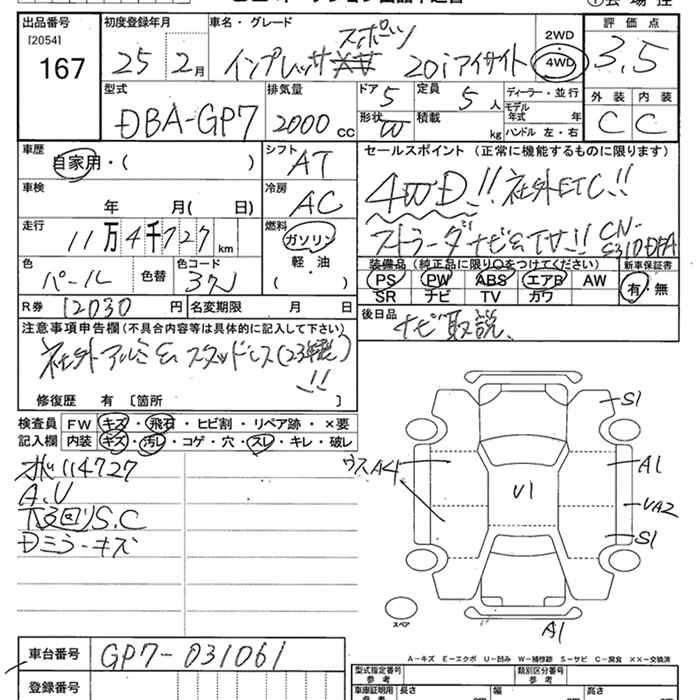 出品番号 初度登録年月 車名・グレード 評価点
[2054]
167
25年 2月
スポーツ
インプレッサ 20iアイサイト
2WD
4WD
3.5
型式 排気量 ドア 定員 ディーラー・並行 外装 内装
DBA-GP7 2000cc 5 5人 モデル年式 年 C C
形状 W 積載 kg ハンドル 左・右
車歴 シフト セールスポイント (正常に機能するものに限ります)
自家用・( ) AT
4WD!! 社外ETC!!
車検 冷房
年 月( 日) AC
走行 燃料
11万4千727km ガソリン
軽・油
( )
ストラーダナビ&TV!! CN-S310DPA
色 色替 色コード 装備品 (純正品に限り○をつけてください) 新車保証書
パール 37J PS PW ABS エアB AW 有・無
SR ナビ TV カワ
R券 12030円 名変期限 月 日
後日品 ナビ取説、
注意事項申告欄(不具合内容等は具体的に記入して下さい)
社外アルミ&スタッドレス(23年製)!!
修復歴 有 [箇所 ]
検査員 FW キズ・飛石・ヒビ割・リペア跡・×要
記入欄 内装 キズ・汚レ・コゲ・穴・スレ・キレ・破レ
114727
A.U
下回りS.C
Dミラーキズ
S1
ウスA4 U1 A1
UA2
S1
スペア
A1
A-キズ E-エクボ U-凹み W-補修跡 S-サビ C-腐食 XX-交換済
車台番号 GP7-031061
登録番号
型式指定番号 参考 類別区分番号 参考
車庫証明用 参考 長さ 幅 高さ